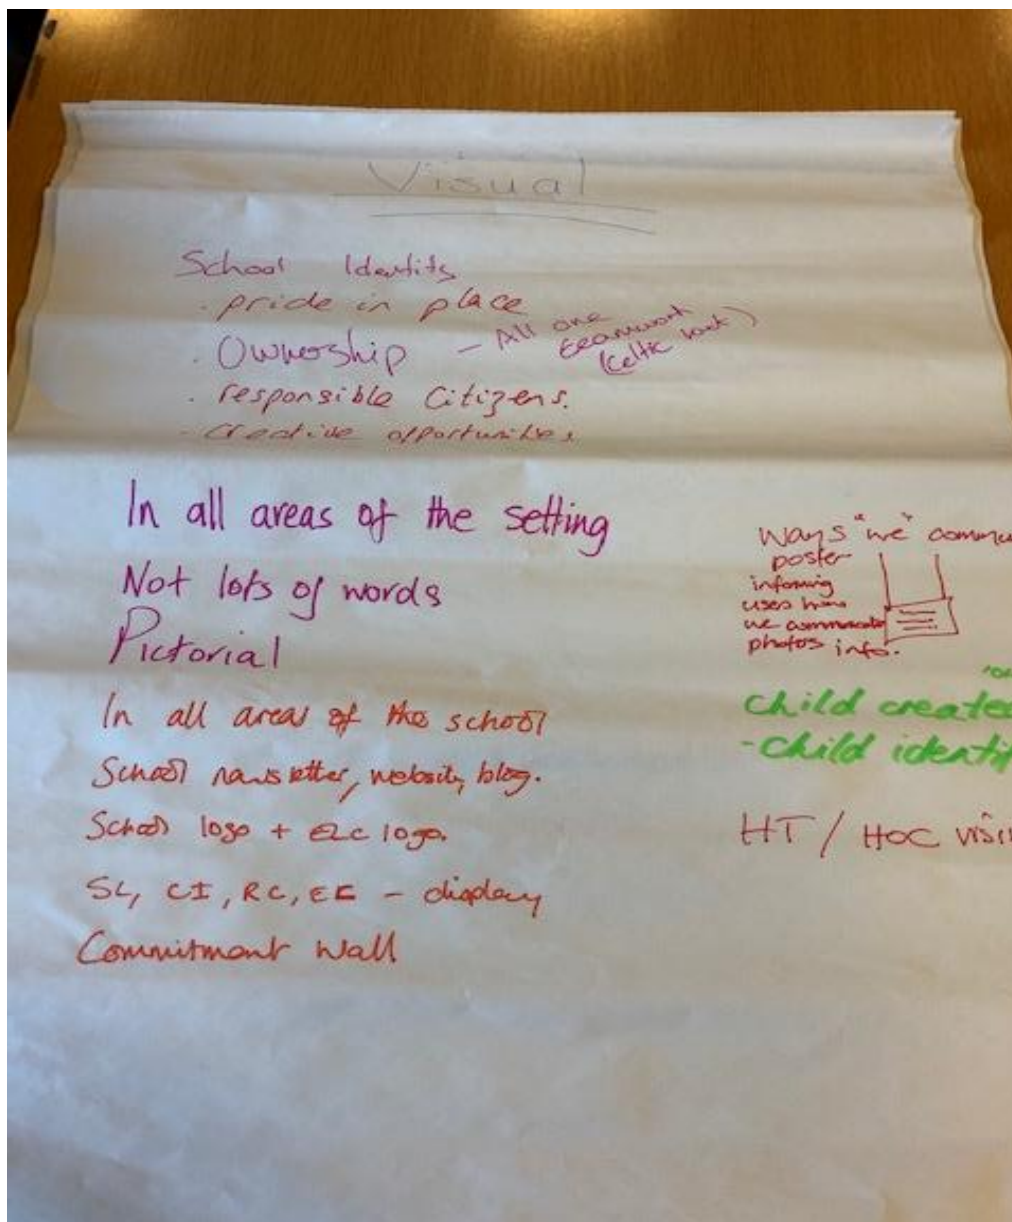 Visual
School Identity
· pride in place
· Ownership – All one
teamwork
(Celtic knot)
· responsible Citizens.
· creative opportunities
In all areas of the setting
Not lots of words
Pictorial
In all areas of the school
School newsletter, website, blog.
School logo + ELC logo.
SL, CI, RC, EC – display
Commitment Wall
Ways "we" commu
poster
informing
users how
we communicate
photos info.
child created
- child identi
HT / HOC visi